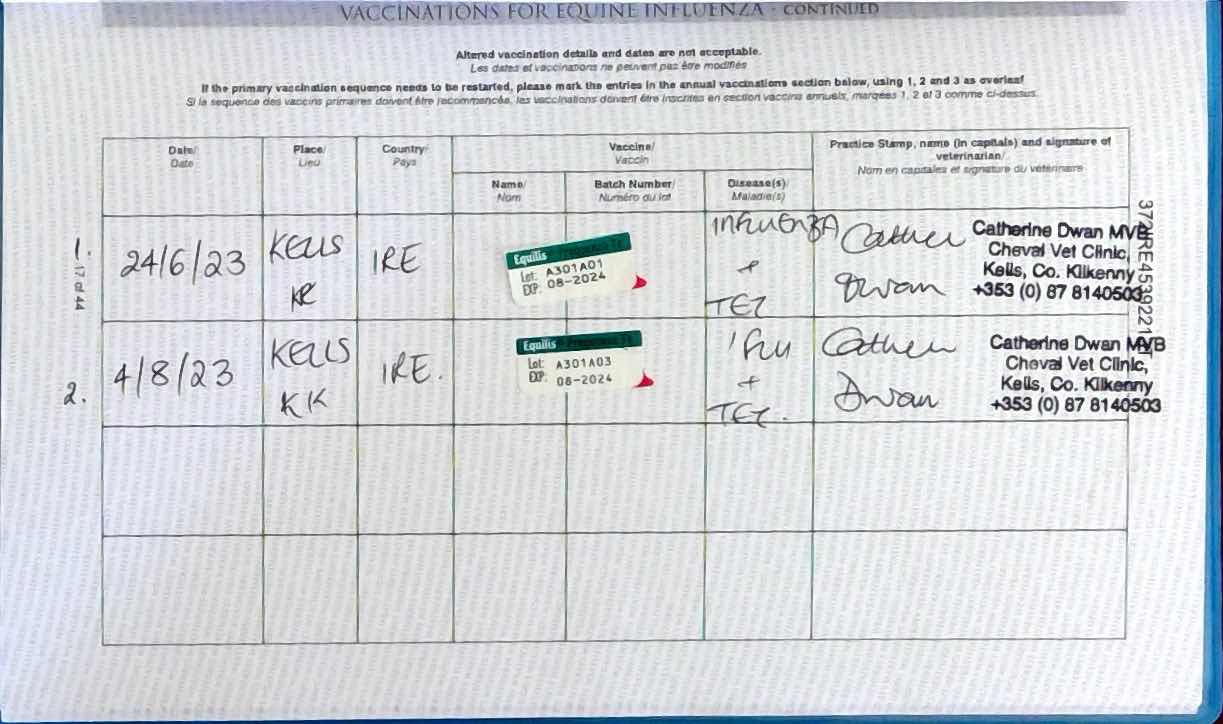 VACCINATIONS FOR EQUINE INFLUENZA - CONTINUED
Altered vaccination details and dates are not acceptable.
Les dates et vaccinations ne peuvent pas être modifiés
If the primary vaccination sequence needs to be restarted, please mark the entries in the annual vaccinations section below, using 1, 2 and 3 as overleaf
Si la sequence des vaccins primaires doivent être recommencée, les vaccinations doivent être inscrites en section vaccins annuels, marqées 1, 2 et 3 comme ci-dessus.
Date/
Date
Place/
Lieu
Country/
Pays
Vaccine/
Vaccin
Name/
Nom
Batch Number/
Numéro du lot
Disease(s)/
Maladie(s)
Practice Stamp, name (in capitals) and signature of
veterinarian/
Nom en capitales et signature du vétérinaire
1.
17 of 44
24/6/23
KELLS
KK
IRE
Equilis Prequenza Te
Lot: A301A01
EXP: 08-2024
INFLUENZA
+
TET
Catherine
Dwan
Catherine Dwan MVB
Cheval Vet Clinic,
Kells, Co. Kilkenny
+353 (0) 87 8140503
2.
4/8/23
KELLS
KK
IRE.
Equilis Prequenza Te
Lot: A301A03
EXP: 08-2024
'FLU
+
TET.
Catherine
Dwan
Catherine Dwan MVB
Cheval Vet Clinic,
Kells, Co. Kilkenny
+353 (0) 87 8140503